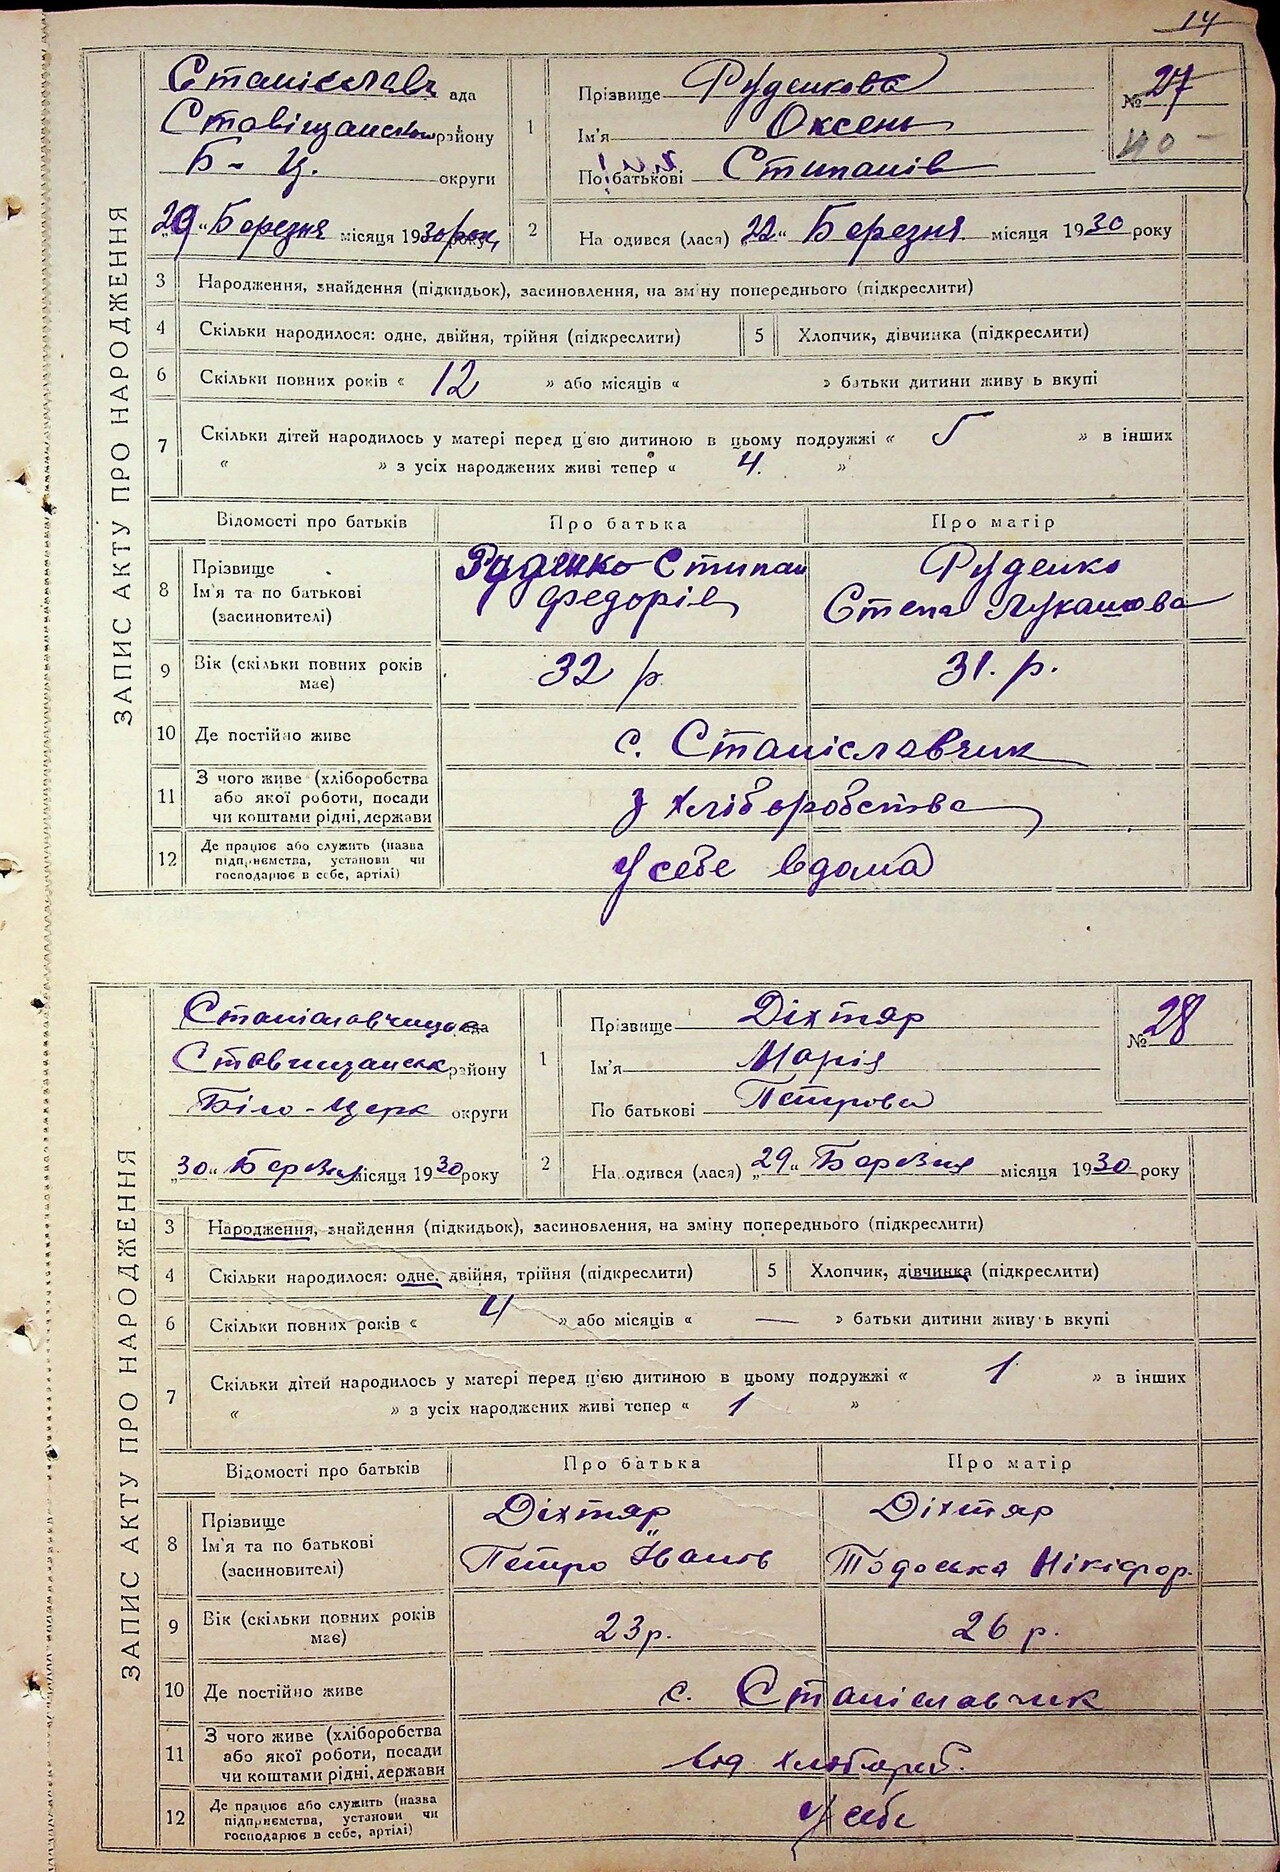 14
ЗАПИС АКТУ ПРО НАРОДЖЕННЯ
Станіславч ада
Ставіщанськ району
Б - Ц. округи
29 „ Березня місяця 1930 рок
1
Прізвище Руденкова
Ім'я Оксень
По батькові Стипанів
№ 27
40 -
2
На одився (лася) „22“ Березня місяця 1930 року
3 Народження, знайдення (підкидьок), засиновлення, на зміну попереднього (підкреслити)
4 Скільки народилося: одне, двійня, трійня (підкреслити)
5 Хлопчик, дівчинка (підкреслити)
6 Скільки повних років « 12 » або місяців « » батьки дитини живу ь вкупі
7 Скільки дітей народилось у матері перед ц'єю дитиною в цьому подружжі « 5 » в інших
« » з усіх народжених живі тепер « 4. »
Відомості про батьків Про батька Про матір
8 Прізвище
Ім'я та по батькові
(засиновителі)
Руденко Стипан
Федорів
Руденко
Степа Лукашова
9 Вік (скільки повних років
має)
32 р 31. р.
10 Де постійно живе с. Станіславчик
11 З чого живе (хліборобства
або якої роботи, посади
чи коштами рідні, держави
з хліборобства
12 Де працює або служить (назва
підприємства, установи чи
господарює в себе, артілі)
У себе вдома
ЗАПИС АКТУ ПРО НАРОДЖЕННЯ
Станіславчицьк ада
Ставищанськ району
Біло - Церк округи
„30“ Березня місяця 1930 року
1
Прізвище Діхтяр
Ім'я Марія
По батькові Петрова
№ 28
2
На одився (лася) „29“ Березня місяця 1930 року
3 Народження, знайдення (підкидьок), засиновлення, на зміну попереднього (підкреслити)
4 Скільки народилося: одне, двійня, трійня (підкреслити)
5 Хлопчик, дівчинка (підкреслити)
6 Скільки повних років « 4 » або місяців « — » батьки дитини живу ь вкупі
7 Скільки дітей народилось у матері перед ц'єю дитиною в цьому подружжі « 1 » в інших
« » з усіх народжених живі тепер « 1 »
Відомості про батьків Про батька Про матір
8 Прізвище
Ім'я та по батькові
(засиновителі)
Діхтяр
Петро Іванов
Діхтяр
Тодоська Нікіфор.
9 Вік (скільки повних років
має)
23 р. 26 р.
10 Де постійно живе с. Станіславчик
11 З чого живе (хліборобства
або якої роботи, посади
чи коштами рідні, держави
від хлібороб.
12 Де працює або служить (назва
підприємства, установи чи
господарює в себе, артілі)
У себе